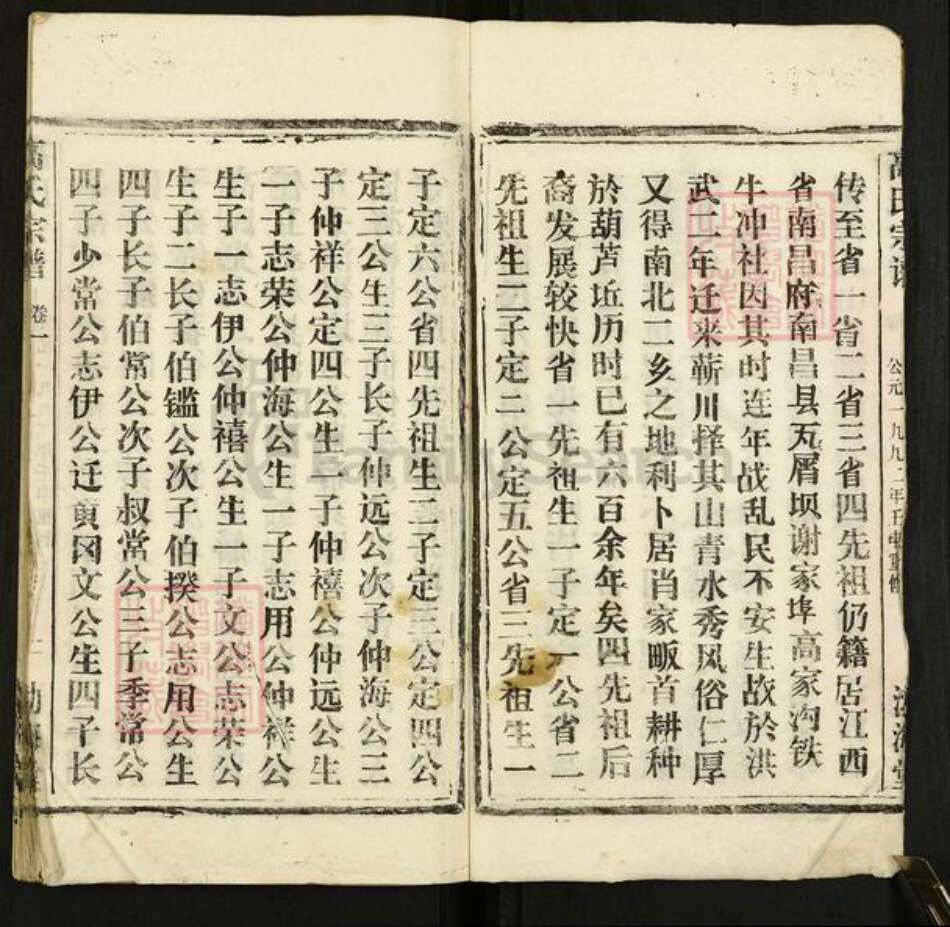 高氏宗谱
公元一九九二年壬申重修
渤海堂
传至省一省二省三省四先祖仍籍居江西
省南昌府南昌县瓦屑坝谢家埠高家沟铁
牛冲社因其时连年战乱民不安生故於洪
武二年迁来蕲川择其山青水秀风俗仁厚
又得南北二亥之地利卜居肖家畈首耕种
於葫芦坵历时已有六百余年矣四先祖后
裔发展较快省一先祖生一子定一公省二
先祖生二子定二公定五公省三先祖生一
子定六公省四先祖生二子定三公定四公
定三公生三子长子仲远公次子仲海公三
子仲祥公定四公生一子仲禧公仲远公生
一子志荣公仲海公生一子志用公仲祥公
生子一志伊公仲禧公生一子文公志荣公
生子二长子伯镒公次子伯揆公志用公生
四子长子伯常公次子叔常公三子季常公
四子少常公志伊公迁黄冈文公生四子长
高氏宗谱
卷一
渤海堂